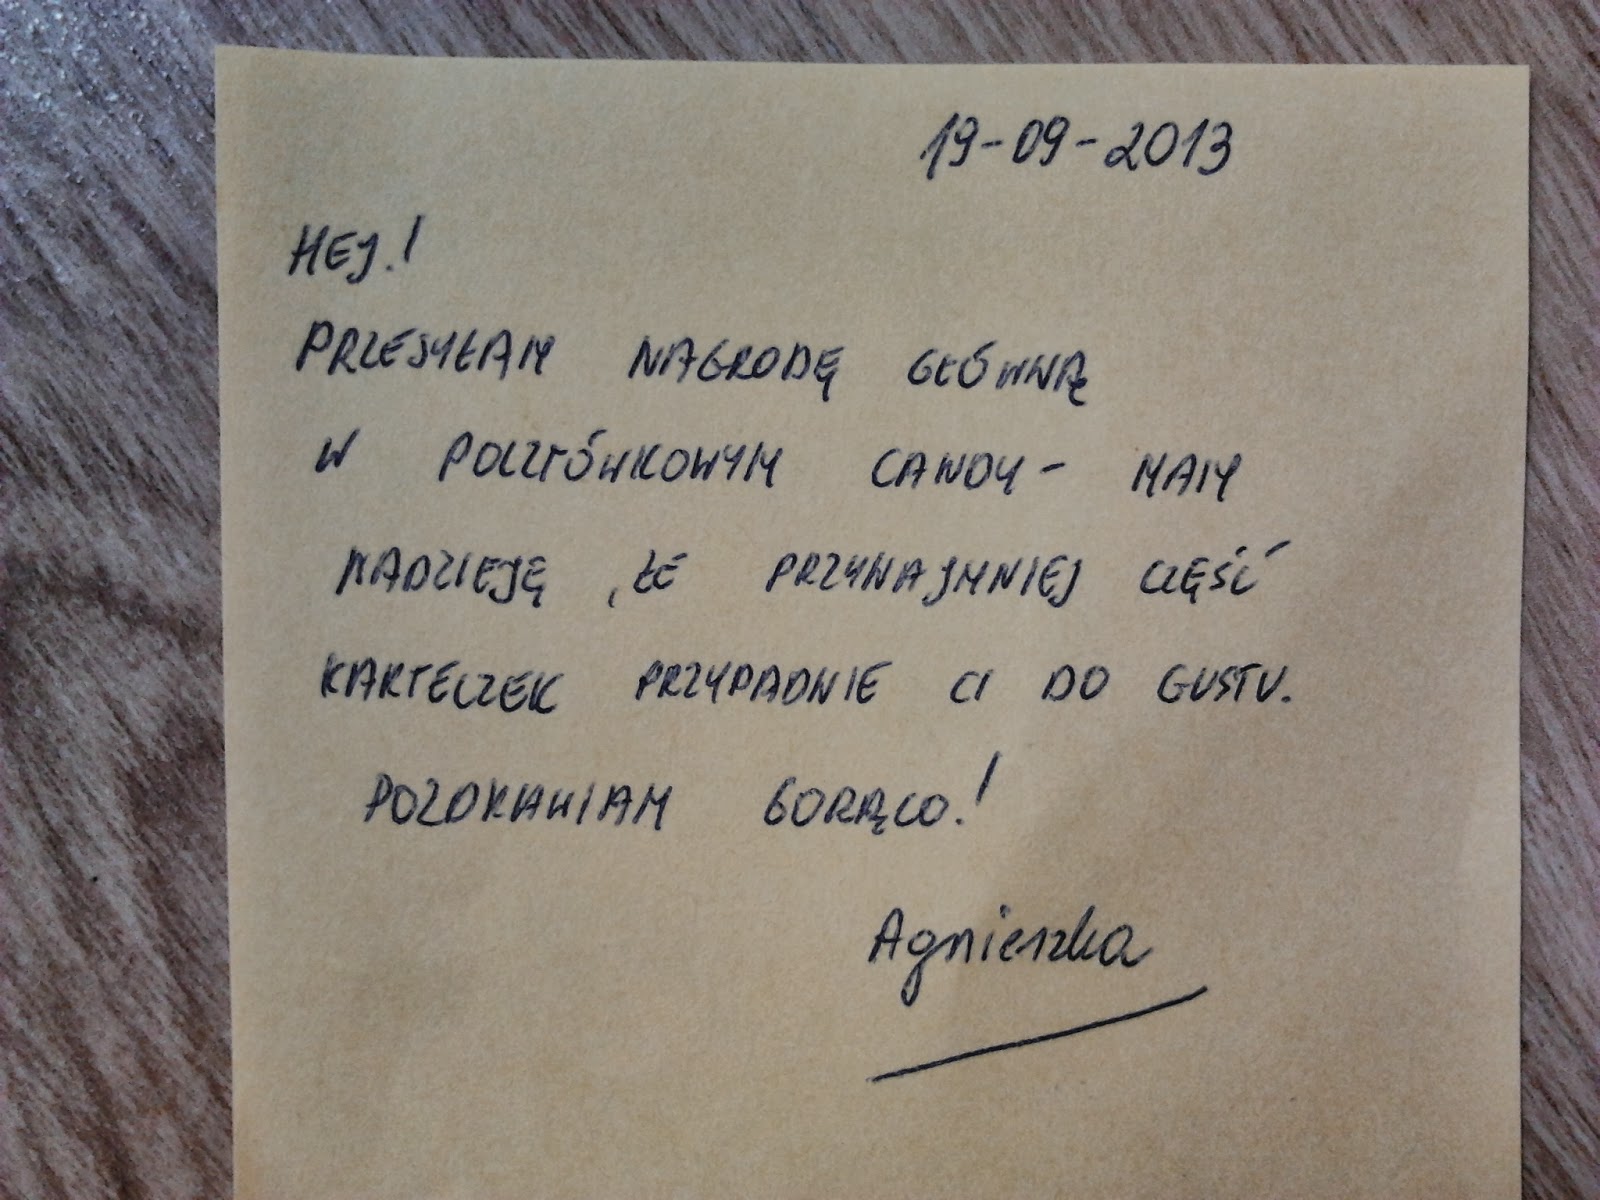 19-09-2013
HEJ!
PRZESYŁAM NAGRODĘ GŁÓWNĄ
W POCZTÓWKOWYM CANDY - MAM
NADZIEJĘ , ŻE PRZYNAJMNIEJ CZĘŚĆ
KARTECZEK PRZYPADNIE CI DO GUSTU.
POZDRAWIAM GORĄCO!
Agnieszka